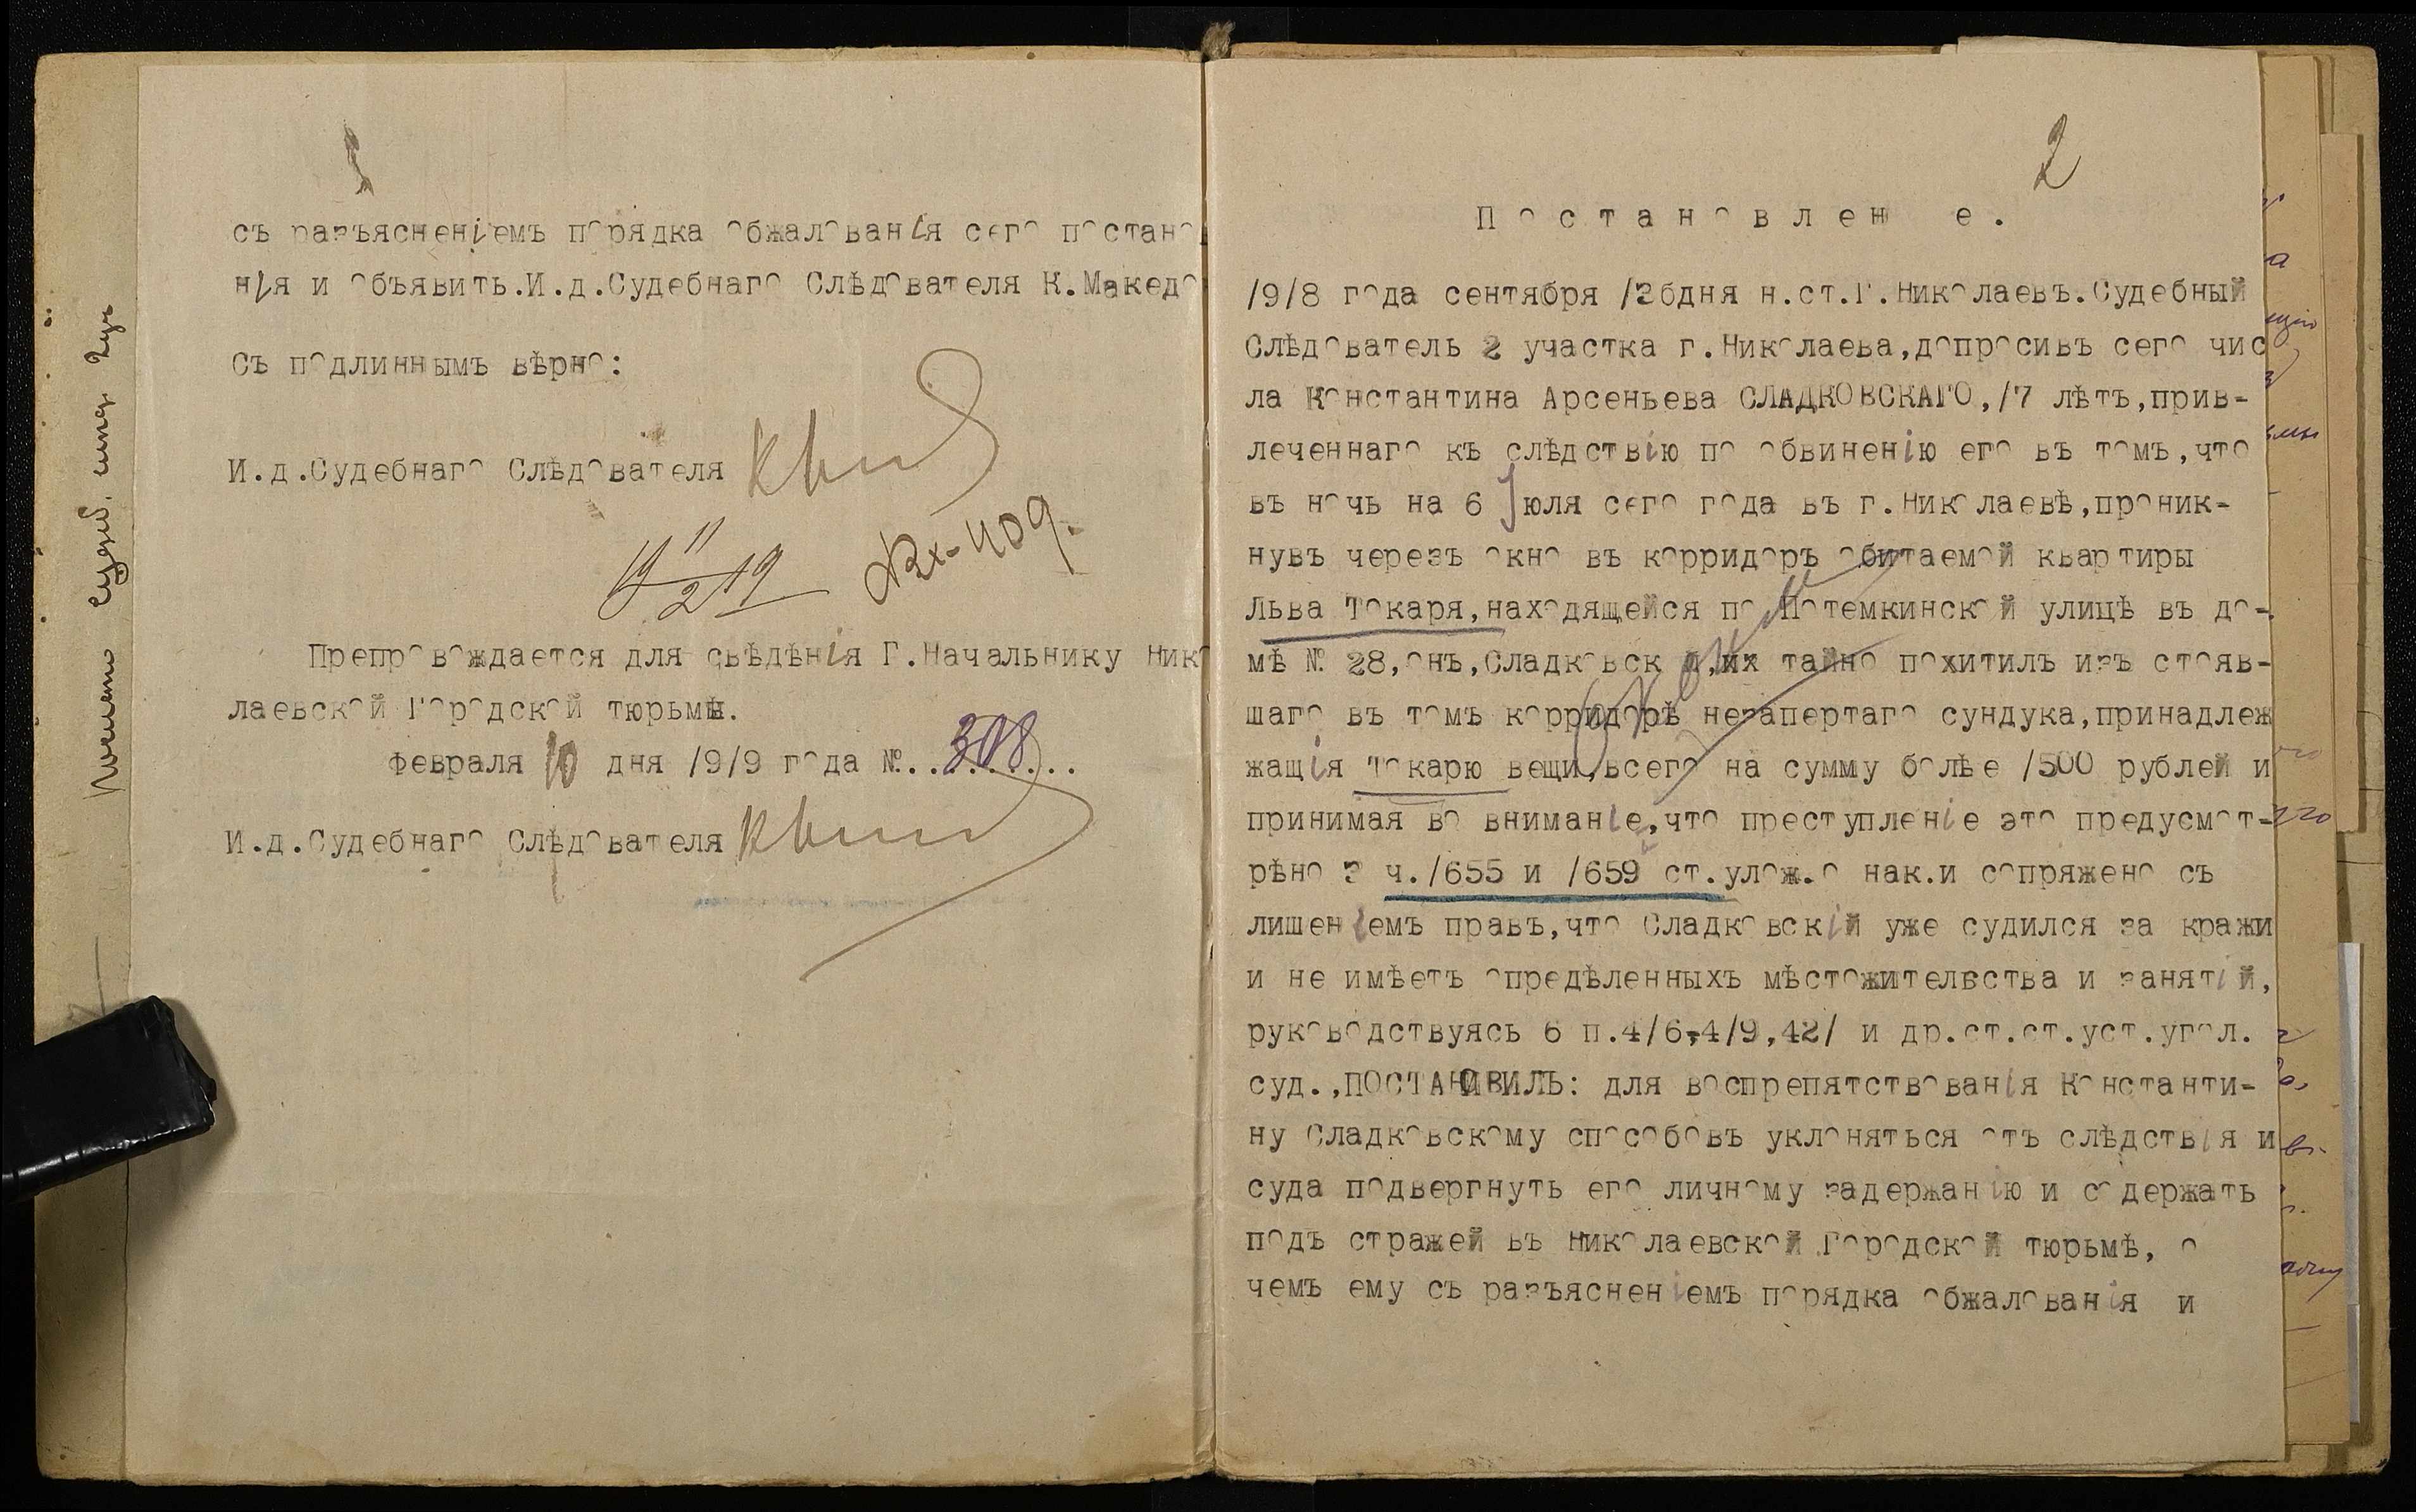 съ разъясненіемъ порядка обжалованія сего постано
нія и объявить.И.д.Судебнаго Слѣдователя К.Македо
Съ подлиннымъ вѣрно:
И.д.Судебнаго Слѣдователя
19 11/2 19
Вх. 409.
Препровождается для свѣдѣнія Г.Начальнику Нико
лаевской Городской тюрьмы.
Февраля 10 дня /9/9 года №..308....
И.д.Судебнаго Слѣдователя
2
Постановлен е.
/9/8 года сентября /26дня н.ст.Г.Николаевъ.Судебный
Слѣдователь 2 участка г.Николаева,допросивъ сего чис
ла Константина Арсеньева СЛАДКОВСКАГО,/7 лѣтъ,прив-
леченнаго къ слѣдствію по обвиненію его въ томъ,что
въ ночь на 6 Іюля сего года въ г.Николаевѣ,проник-
нувъ черезъ окно въ корридоръ обитаемой квартиры
Льва Токаря,находящейся по Потемкинской улицѣ въ до-
мѣ № 28,онъ,Сладковск й,их тайно похитилъ изъ стояв-
шаго въ томъ корридорѣ незапертаго сундука,принадлеж
жащія Токарю вещи,всего на сумму болѣе /500 рублей и
принимая во вниманіе,что преступленіе это предусмот-
рѣно 3 ч./655 и /659 ст.улож.о нак.и сопряжено съ
лишеніемъ правъ,что Сладковскій уже судился за кражи
и не имѣетъ опредѣленныхъ мѣстожительства и занятій,
руководствуясь 6 п.4/6,4/9,42/ и др.ст.ст.уст.угол.
суд.,ПОСТАНОВИЛЪ: для воспрепятствованія Константи-
ну Сладковскому способовъ уклоняться отъ слѣдствія и
суда подвергнуть его личному задержанію и содержать
подъ стражей въ Николаевской Городской тюрьмѣ, о
чемъ ему съ разъясненіемъ порядка обжалованія и